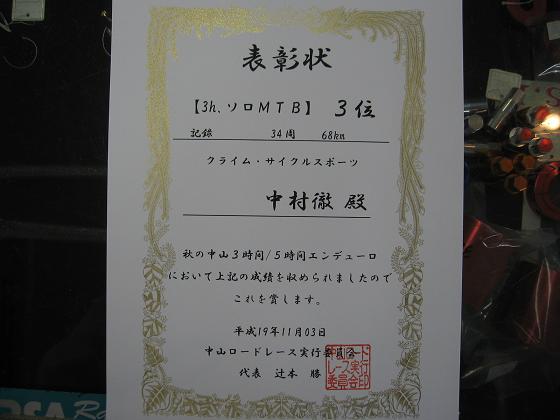 表彰状
【3h、ソロMTB】 3位
記録 34周 68km
クライム・サイクルスポーツ
中村徹 殿
秋の中山3時間/5時間エンデューロ
において上記の成績を収められましたので
これを賞します。
平成19年11月03日
中山ロードレース実行委員会
代表 辻本 勝